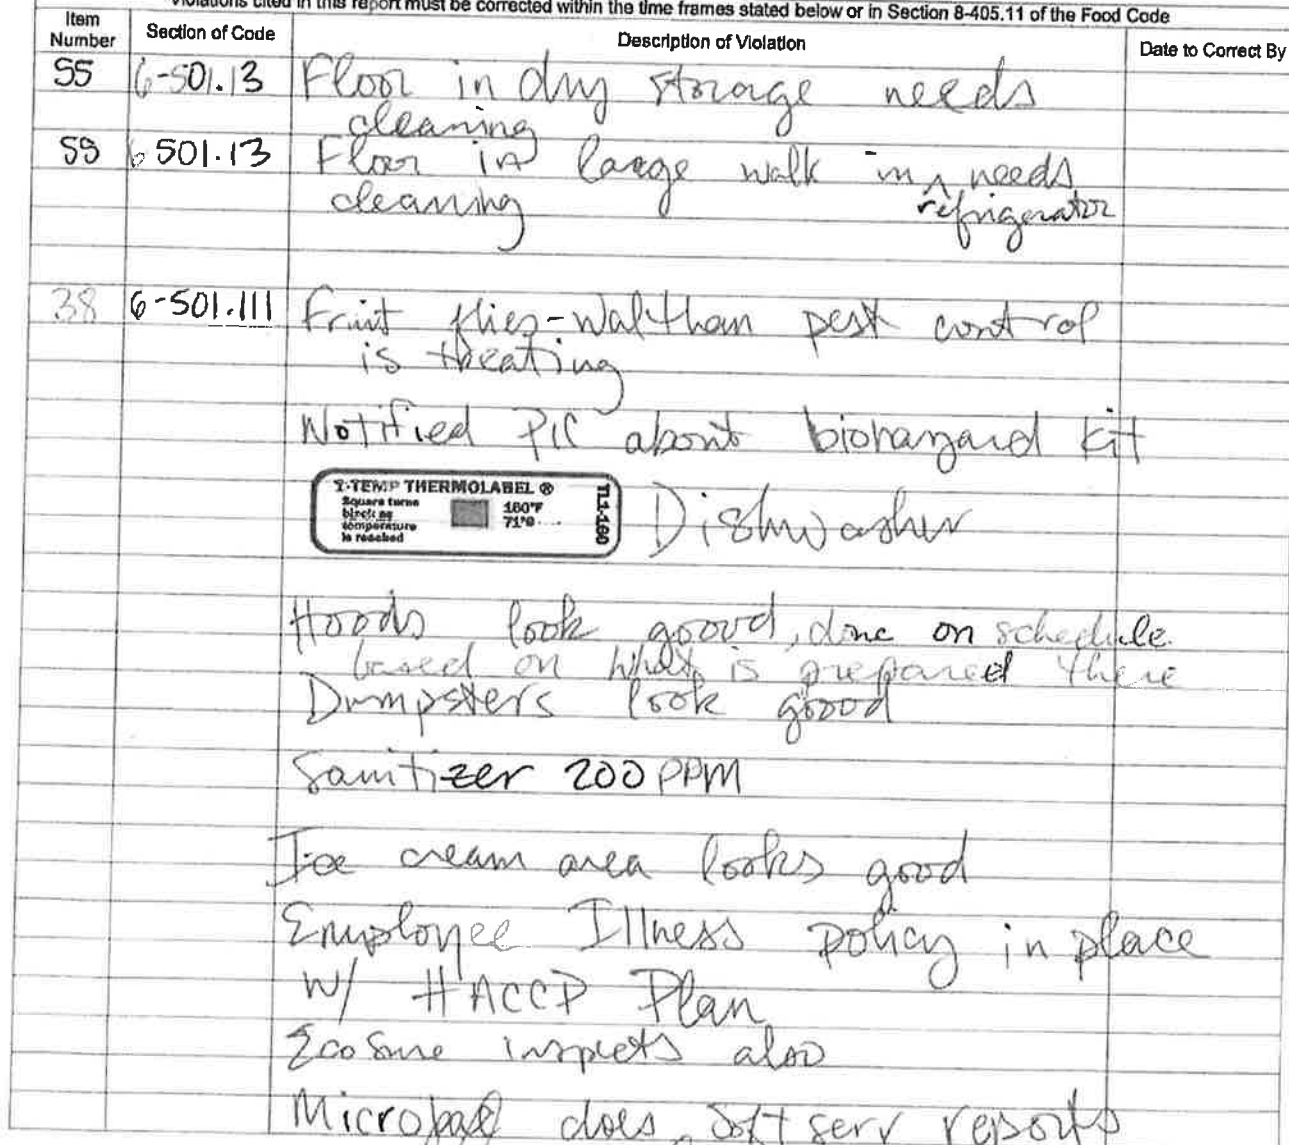 Violations cited in this report must be corrected within the time frames stated below or in Section 8-405.11 of the Food Code
Item Number Section of Code Description of Violation Date to Correct By
55 6-501.13 Floor in dry storage needs
cleaning
55 6 501.13 Floor in large walk in ^ needs
refrigerator
cleaning
38 6-501.111 Fruit flies-Waltham pest control
is treating
Notified PIC about biohazard kit
T-TEMP THERMOLABEL ®
Square turns
black as
temperature
is reached
160°F
71°C
TL1-160
Dishwasher
Hoods look good, done on schedule
based on what is prepared there
Dumpsters look good
Sanitizer 200 PPM
Ice cream area looks good
Employee Illness policy in place
W/ HACCP Plan
EcoSure inspects also
does soft serv reports